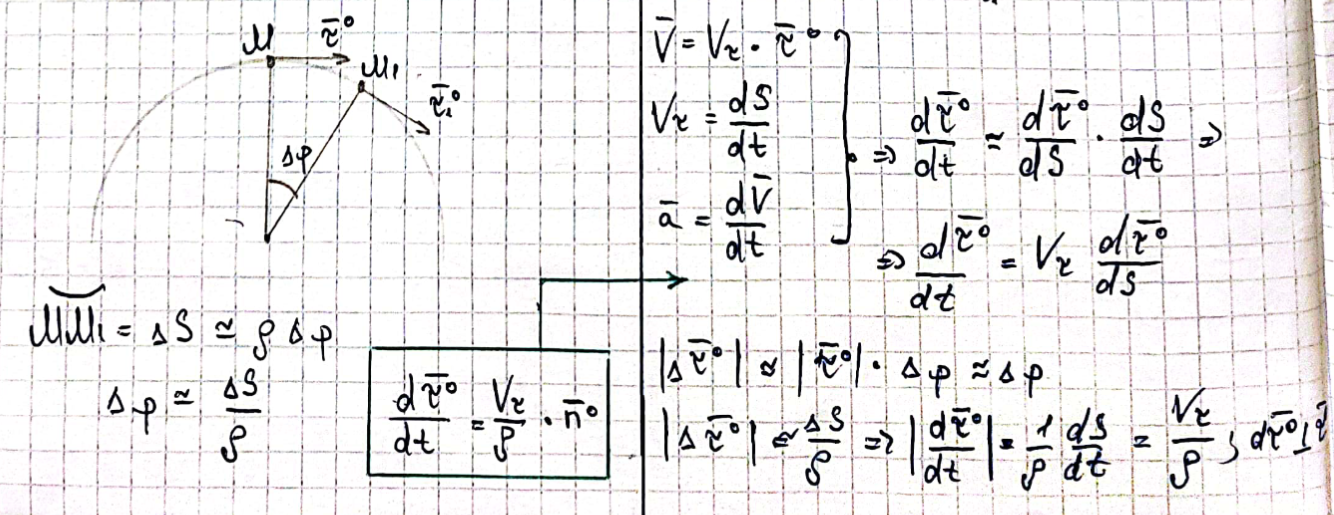 M τ̄° M₁ τ̄₁°
Δφ
M͡M₁ = ΔS ≃ ρ Δφ
Δφ ≃ ΔS/ρ
dτ̄°/dt = Vτ/ρ · n̄°
V̄ = Vτ · τ̄°
Vτ = dS/dt
ā = dV̄/dt
⇒ dτ̄°/dt ≈ dτ̄°/dS · dS/dt ⇒
⇒ dτ̄°/dt = Vτ dτ̄°/dS
|Δτ̄°| ≈ |τ̄°| · Δφ ≈ Δφ
|Δτ̄°| ≈ ΔS/ρ ⇒ |dτ̄°/dt| = 1/ρ dS/dt = Vτ/ρ ; dτ̄° ⊥ τ̄